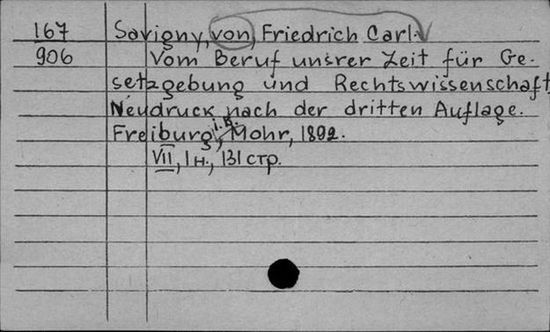 167 Savigny, von, Friedrich Carl.
906 Vom Beruf unsrer Zeit für Ge-
setzgebung und Rechtswissenschaft
Neudruck nach der dritten Auflage.
Freiburg i.B., Mohr, 1892.
VII, 1 н., 131 стр.